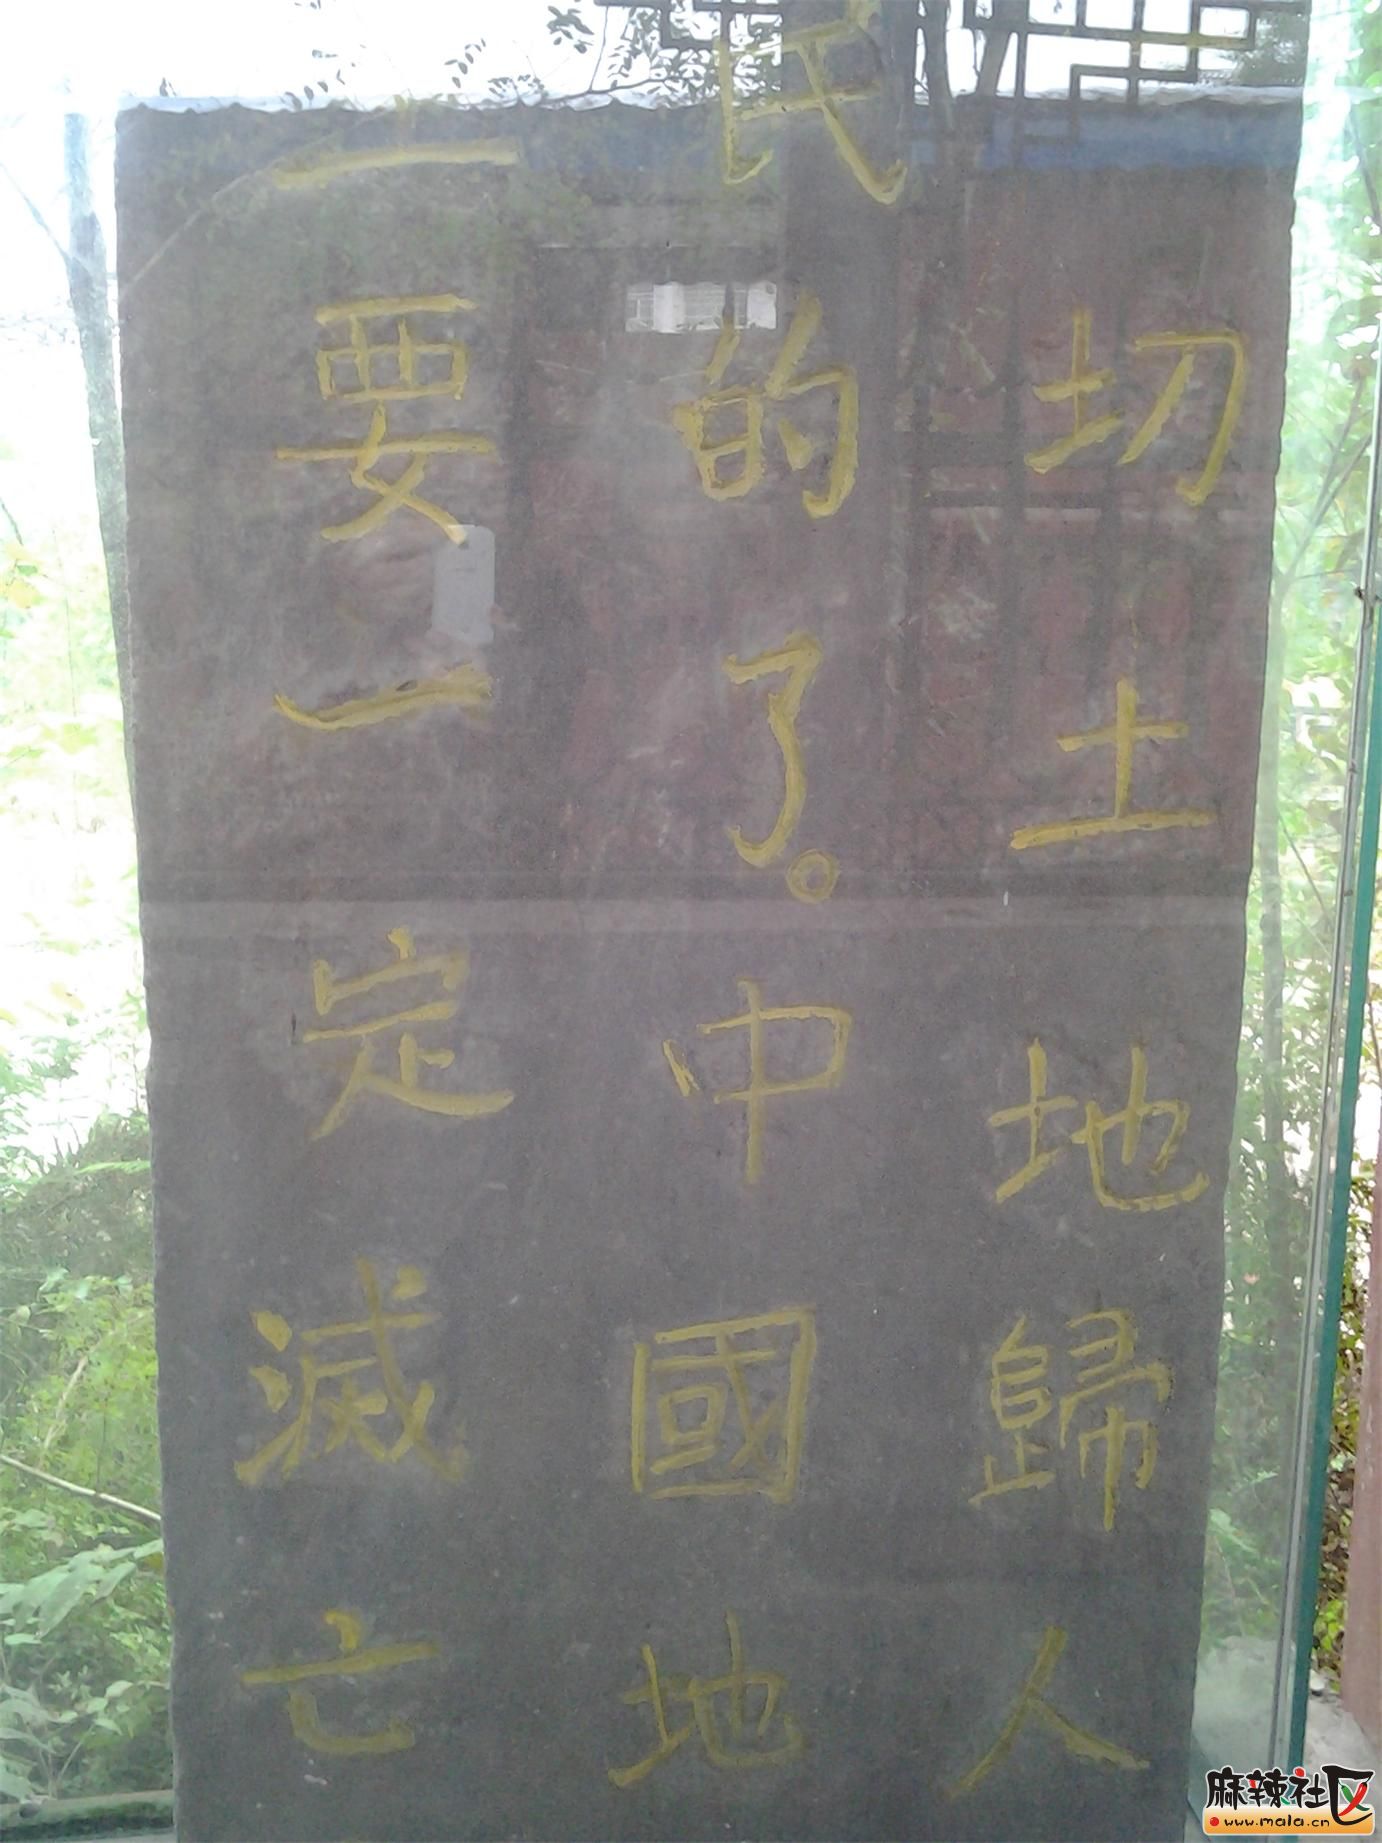 切土地歸人
民的了。中國地
一要一定滅亡
麻辣社区
www.mala.cn